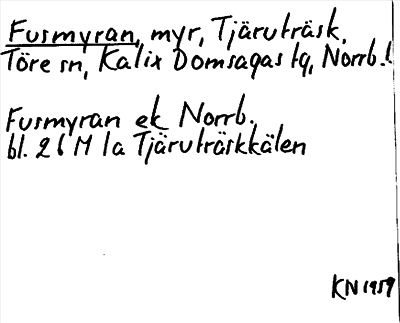 Fusmyran, myr, Tjäruträsk,
Töre sn, Kalix Domsagas tg, Norrb. l
Fusmyran ek Norrb.
bl. 26 M 1a Tjäruträskkälen
KN 1959